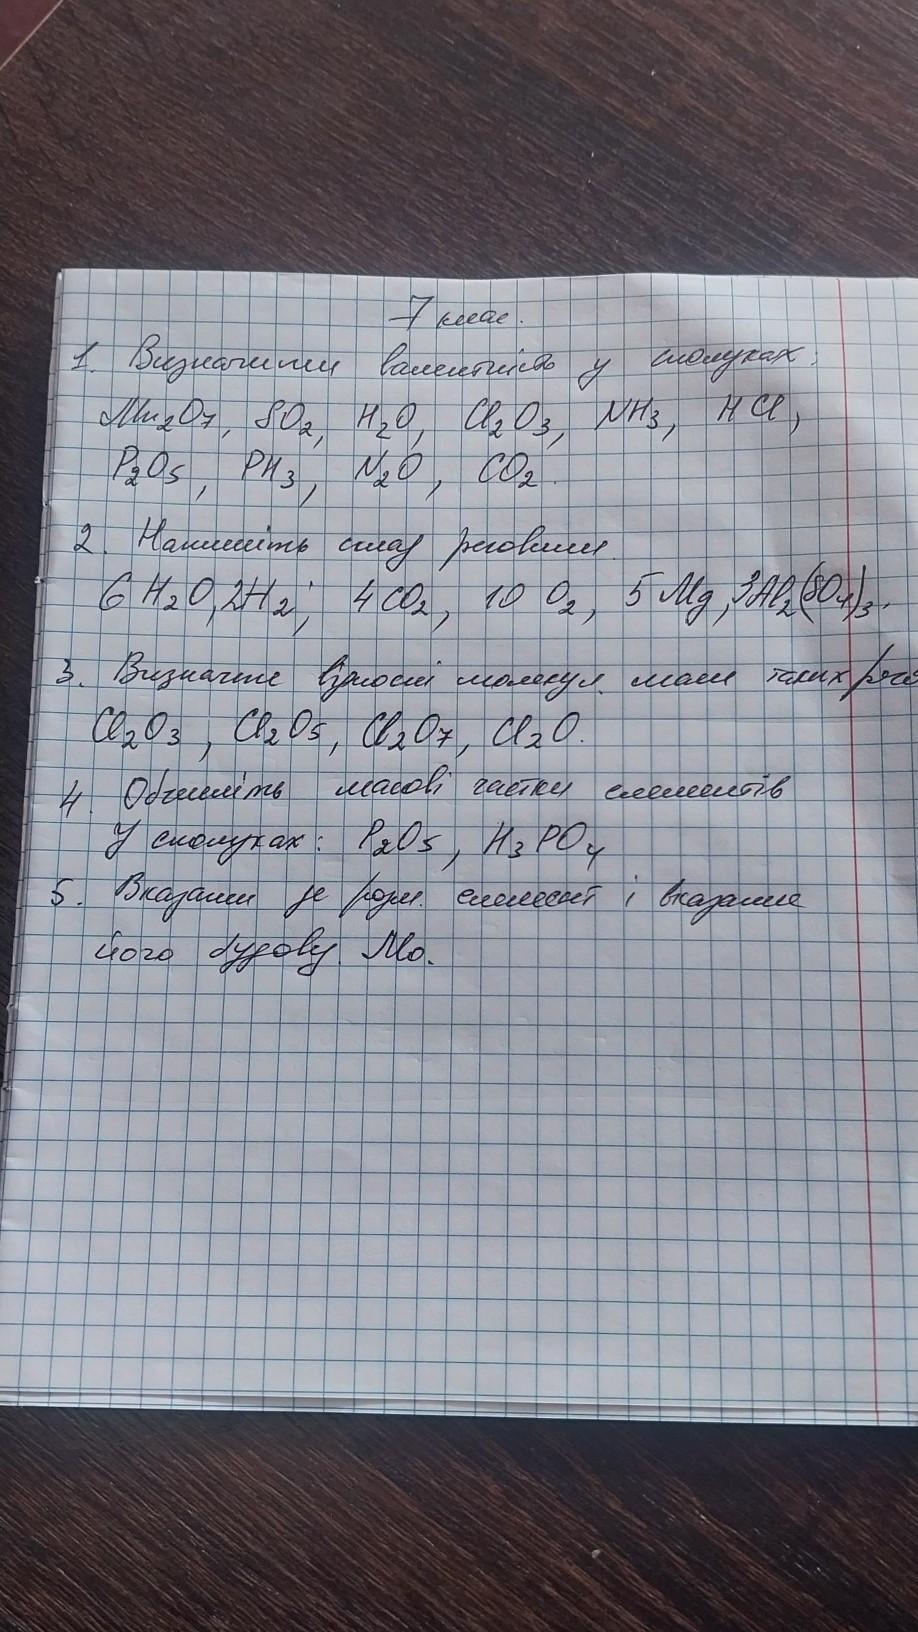 7 клас.
1. Визначити валентність у сполуках:
Mn₂O₇, SO₂, H₂O, Cl₂O₃, NH₃, HCl,
P₂O₅, PH₃, N₂O, CO₂.
2. Напишіть склад речовини.
6 H₂O, 2H₂; 4CO₂, 10 O₂, 5 Mg, 3Al₂(SO₄)₃.
3. Визначте відносні молекул. маси таких речо
Cl₂O₃, Cl₂O₅, Cl₂O₇, Cl₂O.
4. Обчисліть масові частки елементів
У сполуках: P₂O₅, H₃PO₄
5. Вказати де розм. елемент і вказати
його будову. Mo.